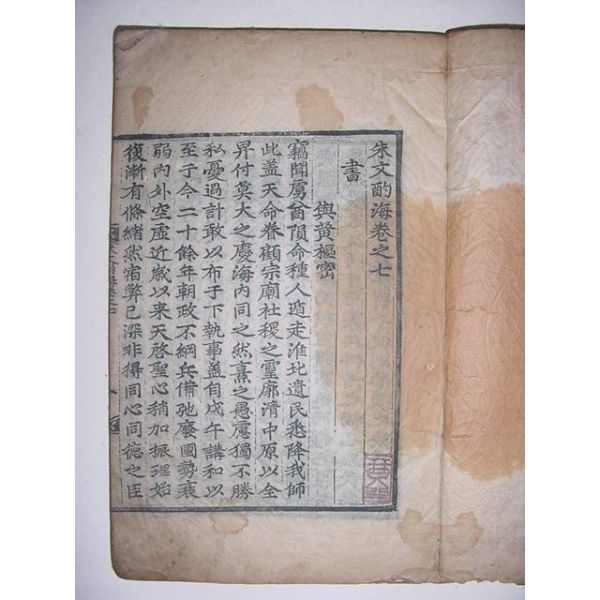 朱文酌海卷之七
書
與黃樞密
竊聞虜酋隕命種人遁走淮北遺民悉降我師
此盖天命眷顧宗廟社稷之靈廓清中原以全
昇付莫大之慶海内同之然熹之愚慮獨不勝
私憂過計敢以布于下執事盖自戊午講和以
至于今二十餘年朝政不綱兵備弛廢國勢衰
弱内外空虛近歲以來天啓聖心稍加振理始
復漸有條緒然宿弊已深非得同心同德之臣